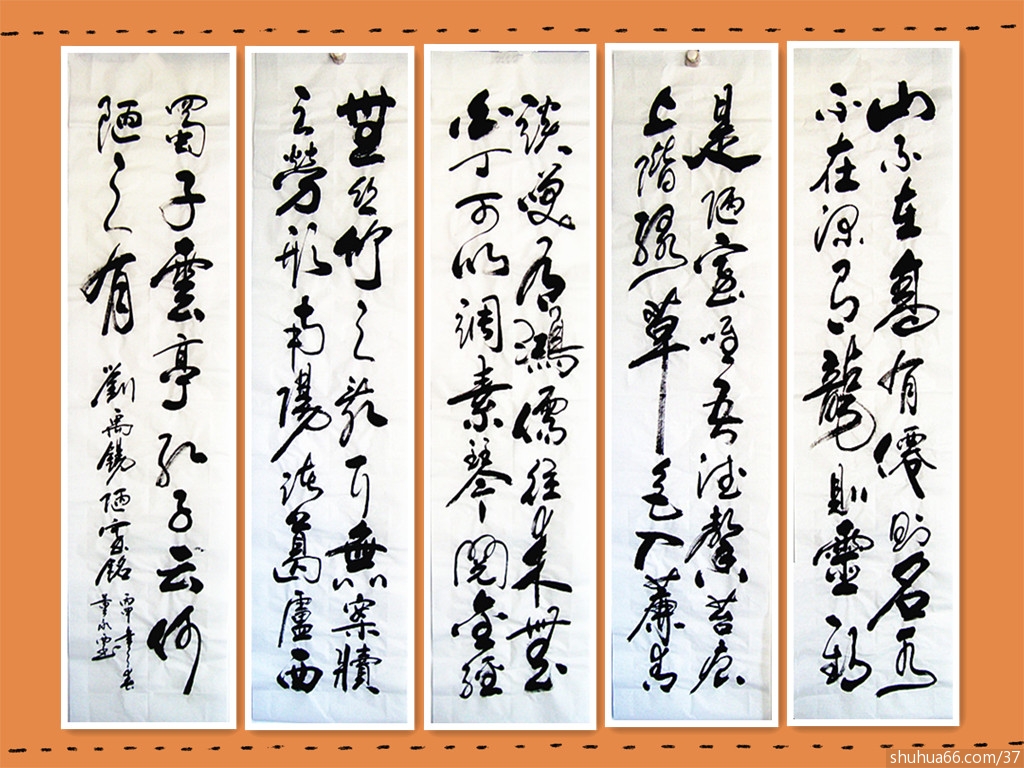 山不在高有僊則名水
不在深有龍則靈斯
是陋室唯吾德馨苔痕
上階綠草色入簾青
談笑有鴻儒往來無
白丁可以調素琴閱金經
無絲竹之亂耳無案牘
之勞形南陽諸葛廬西
蜀子雲亭孔子云何
陋之有 劉禹錫陋室銘
shuhua66.com/37